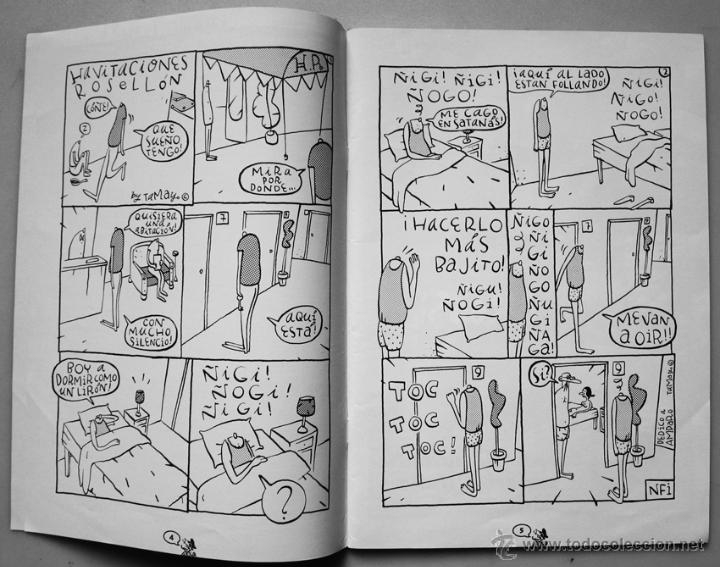 HAVITACIONES
ROSELLÓN
¡OÑE!
QUE
SUEÑO,
TENGO!
by TAMAYO ©
H.P.
MIRA
POR
DONDE...
QUISIERA
UNA
ABITACIÓN!
CON
MUCHO
SILENCIO!
7
AQUÍ
ESTÁ!
BOY A
DORMIR COMO
UN LIRÓN!
ÑIGI!
ÑOGI!
ÑIGI!
?
4
ÑIGI! ÑIGI!
ÑOGO!
ME CAGO
EN SATANÁS!
2
¡AQUÍ AL LADO
ESTAN FOLLANDO!
ÑIGI!
ÑIGO!
ÑOGO!
¡HACERLO
MÁS
BAJITO!
ÑIGU!
ÑOGI!
ÑIGO
ÑI
GI
ÑO
GO
ÑU
GI
ÑA
GA!
7
ME VAN
A OIR!!
TOC
TOC
TOC!
9
SI?
9
DEDICO A
AMPARO
TAMAYO ©
NFI
5
www.todocoleccion.net